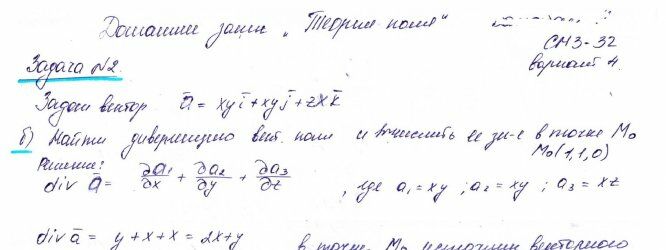 Домашнее задан. „Теория поля“
СМ3-32
вариант 4.
Задача №2.
Задан вектор ā = xy i̅ + xy j̅ + zx k̅
б) Найти дивергенцию вект. поля и вычислить ее зн-е в точке M₀
M₀(1,1,0)
Решение:
div ā = ∂a₁/∂x + ∂a₂/∂y + ∂a₃/∂z , где a₁ = xy ; a₂ = xy ; a₃ = xz
div ā = y + x + x = 2x + y в точке M₀ источник векторного